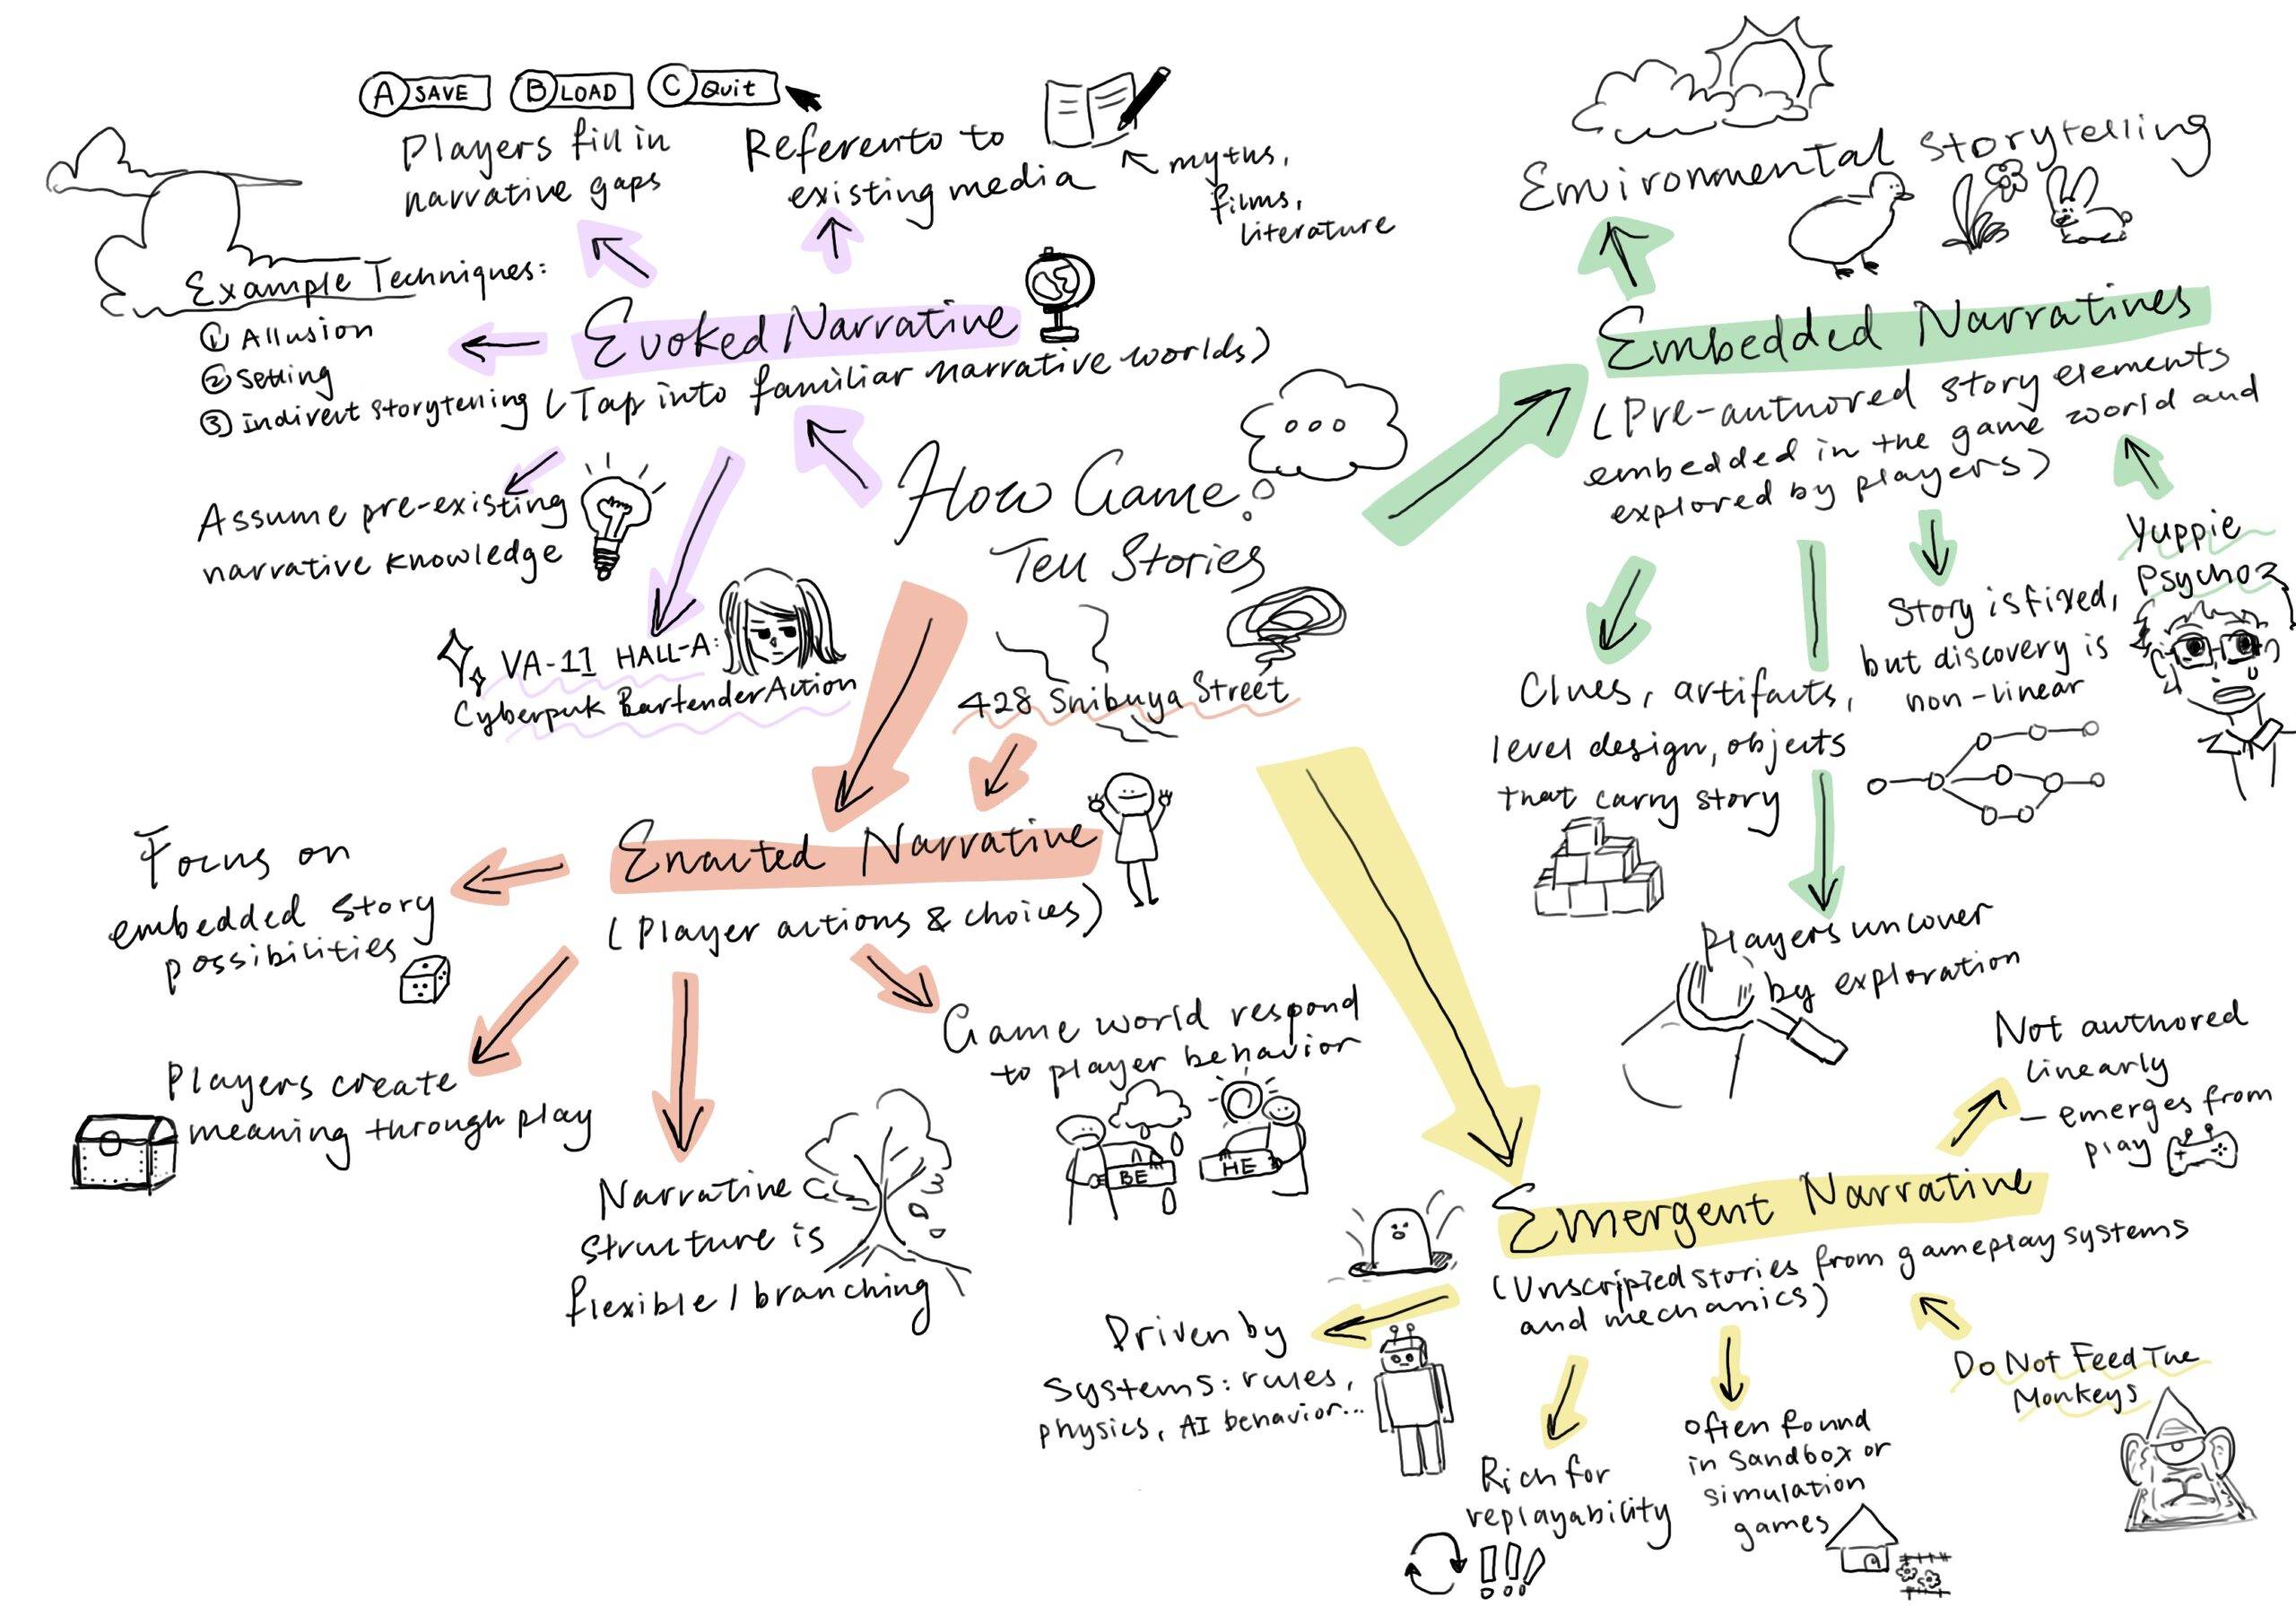 A SAVE
B LOAD
C Quit
Players fill in
narrative gaps
Referento to
existing media
myths,
films,
literature
Example Techniques:
① Allusion
② Setting
③ Indirect Storytelling
Evoked Narrative
(Tap into familiar narrative worlds)
Assume pre-existing
narrative knowledge
VA-11 HALL-A:
Cyberpuk Bartender Action
How Game
Tell Stories
...
Environmental Storytelling
Embedded Narratives
(Pre-authored story elements
embedded in the game world and
explored by players)
Yuppie
Psycho
Story is fixed,
but discovery is
non-linear
Clues, artifacts,
level design, objects
that carry story
Players uncover
by exploration
428 Shibuya Street
Enacted Narrative
(Player actions & choices)
Focus on
embedded story
possibilities
Players create
meaning through play
Narrative
structure is
flexible / branching
Game world respond
to player behavior
BE
HE
Emergent Narrative
(Unscripted stories from gameplay systems
and mechanics)
Not authored
linearly
— emerges from
play
Driven by
systems: rules,
physics, AI behavior...
Rich for
replayability
!!!
Often found
in sandbox or
simulation
games
Do Not Feed The
Monkeys